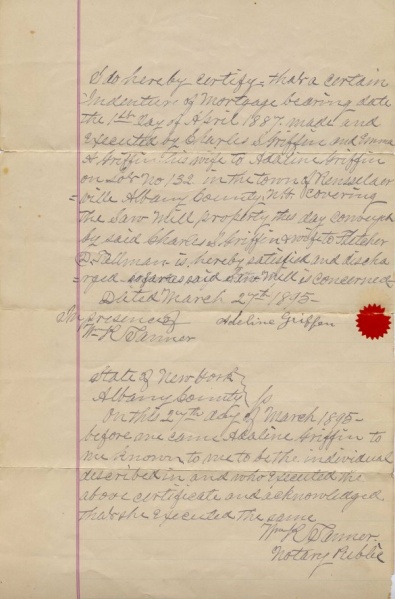 I do hereby certify, that a certain
Indenture of Mortgage bearing date
the 1st day of April 1887. made and
executed by Charles I Griffin and Emma
A Griffin his wife to Adaline Griffin
on Lot No 132. in the town of Rensselaer
=ville Albany County, N.Y. covering
the Saw Mill property this day conveyed
by said Charles I. Griffin & wife to Fletcher
D. Tallman is hereby satisfied and discha
=rged so far as said Saw Mill is concerned
Dated March 27th 1895-
In presence of Adeline Griffen
Wm R Tanner
State of New York }
Albany County } ss
On this 27th day of March 1895-
before me came Adaline Griffin to
me known to me to be the individual
described in and who executed the
above certificate and acknowledged
that she executed the same
Wm R Tanner
Notary Public